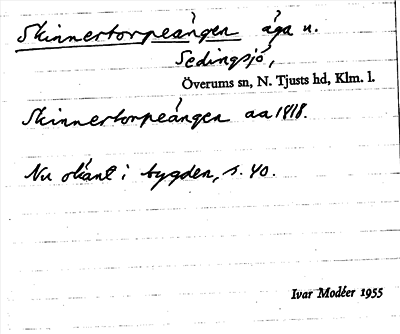 Skinnertorpeängen äga u.
Sedingsjö,
Överums sn, N. Tjusts hd, Klm. l.
Skinnertorpeängen aa 1818.
Nu okänt i bygden, s. 40.
Ivar Modéer 1955